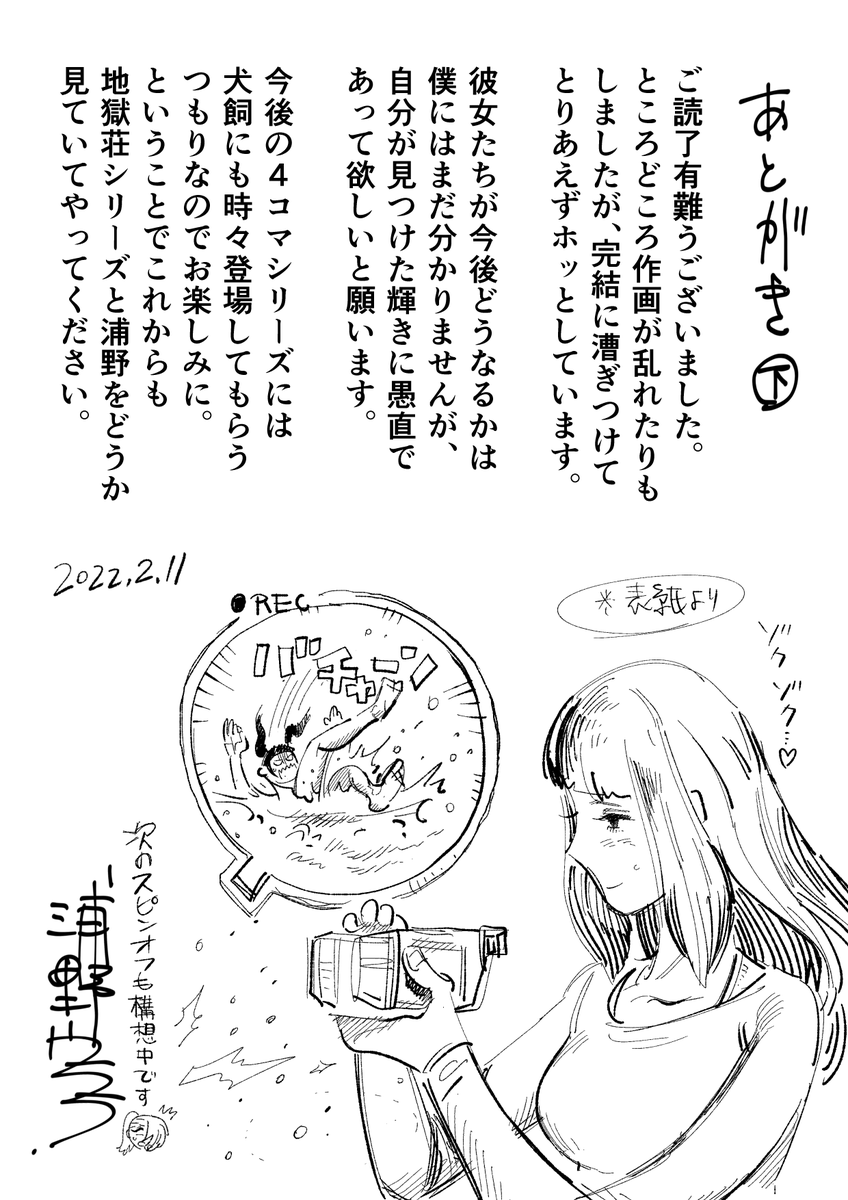 あとがき 下
ご読了有難うございました。
ところどころ作画が乱れたりも
しましたが、完結に漕ぎつけて
とりあえずホッとしています。
彼女たちが今後どうなるかは
僕にはまだ分かりませんが、
自分が見つけた輝きに愚直で
あって欲しいと願います。
今後の4コマシリーズには
犬飼にも時々登場してもらう
つもりなのでお楽しみに。
ということでこれからも
地獄荘シリーズと浦野をどうか
見ていてやってください。
2022.2.11
●REC
バチャーン
※表紙より
ゾク
ゾク…♡
次のスピンオフも構想中です